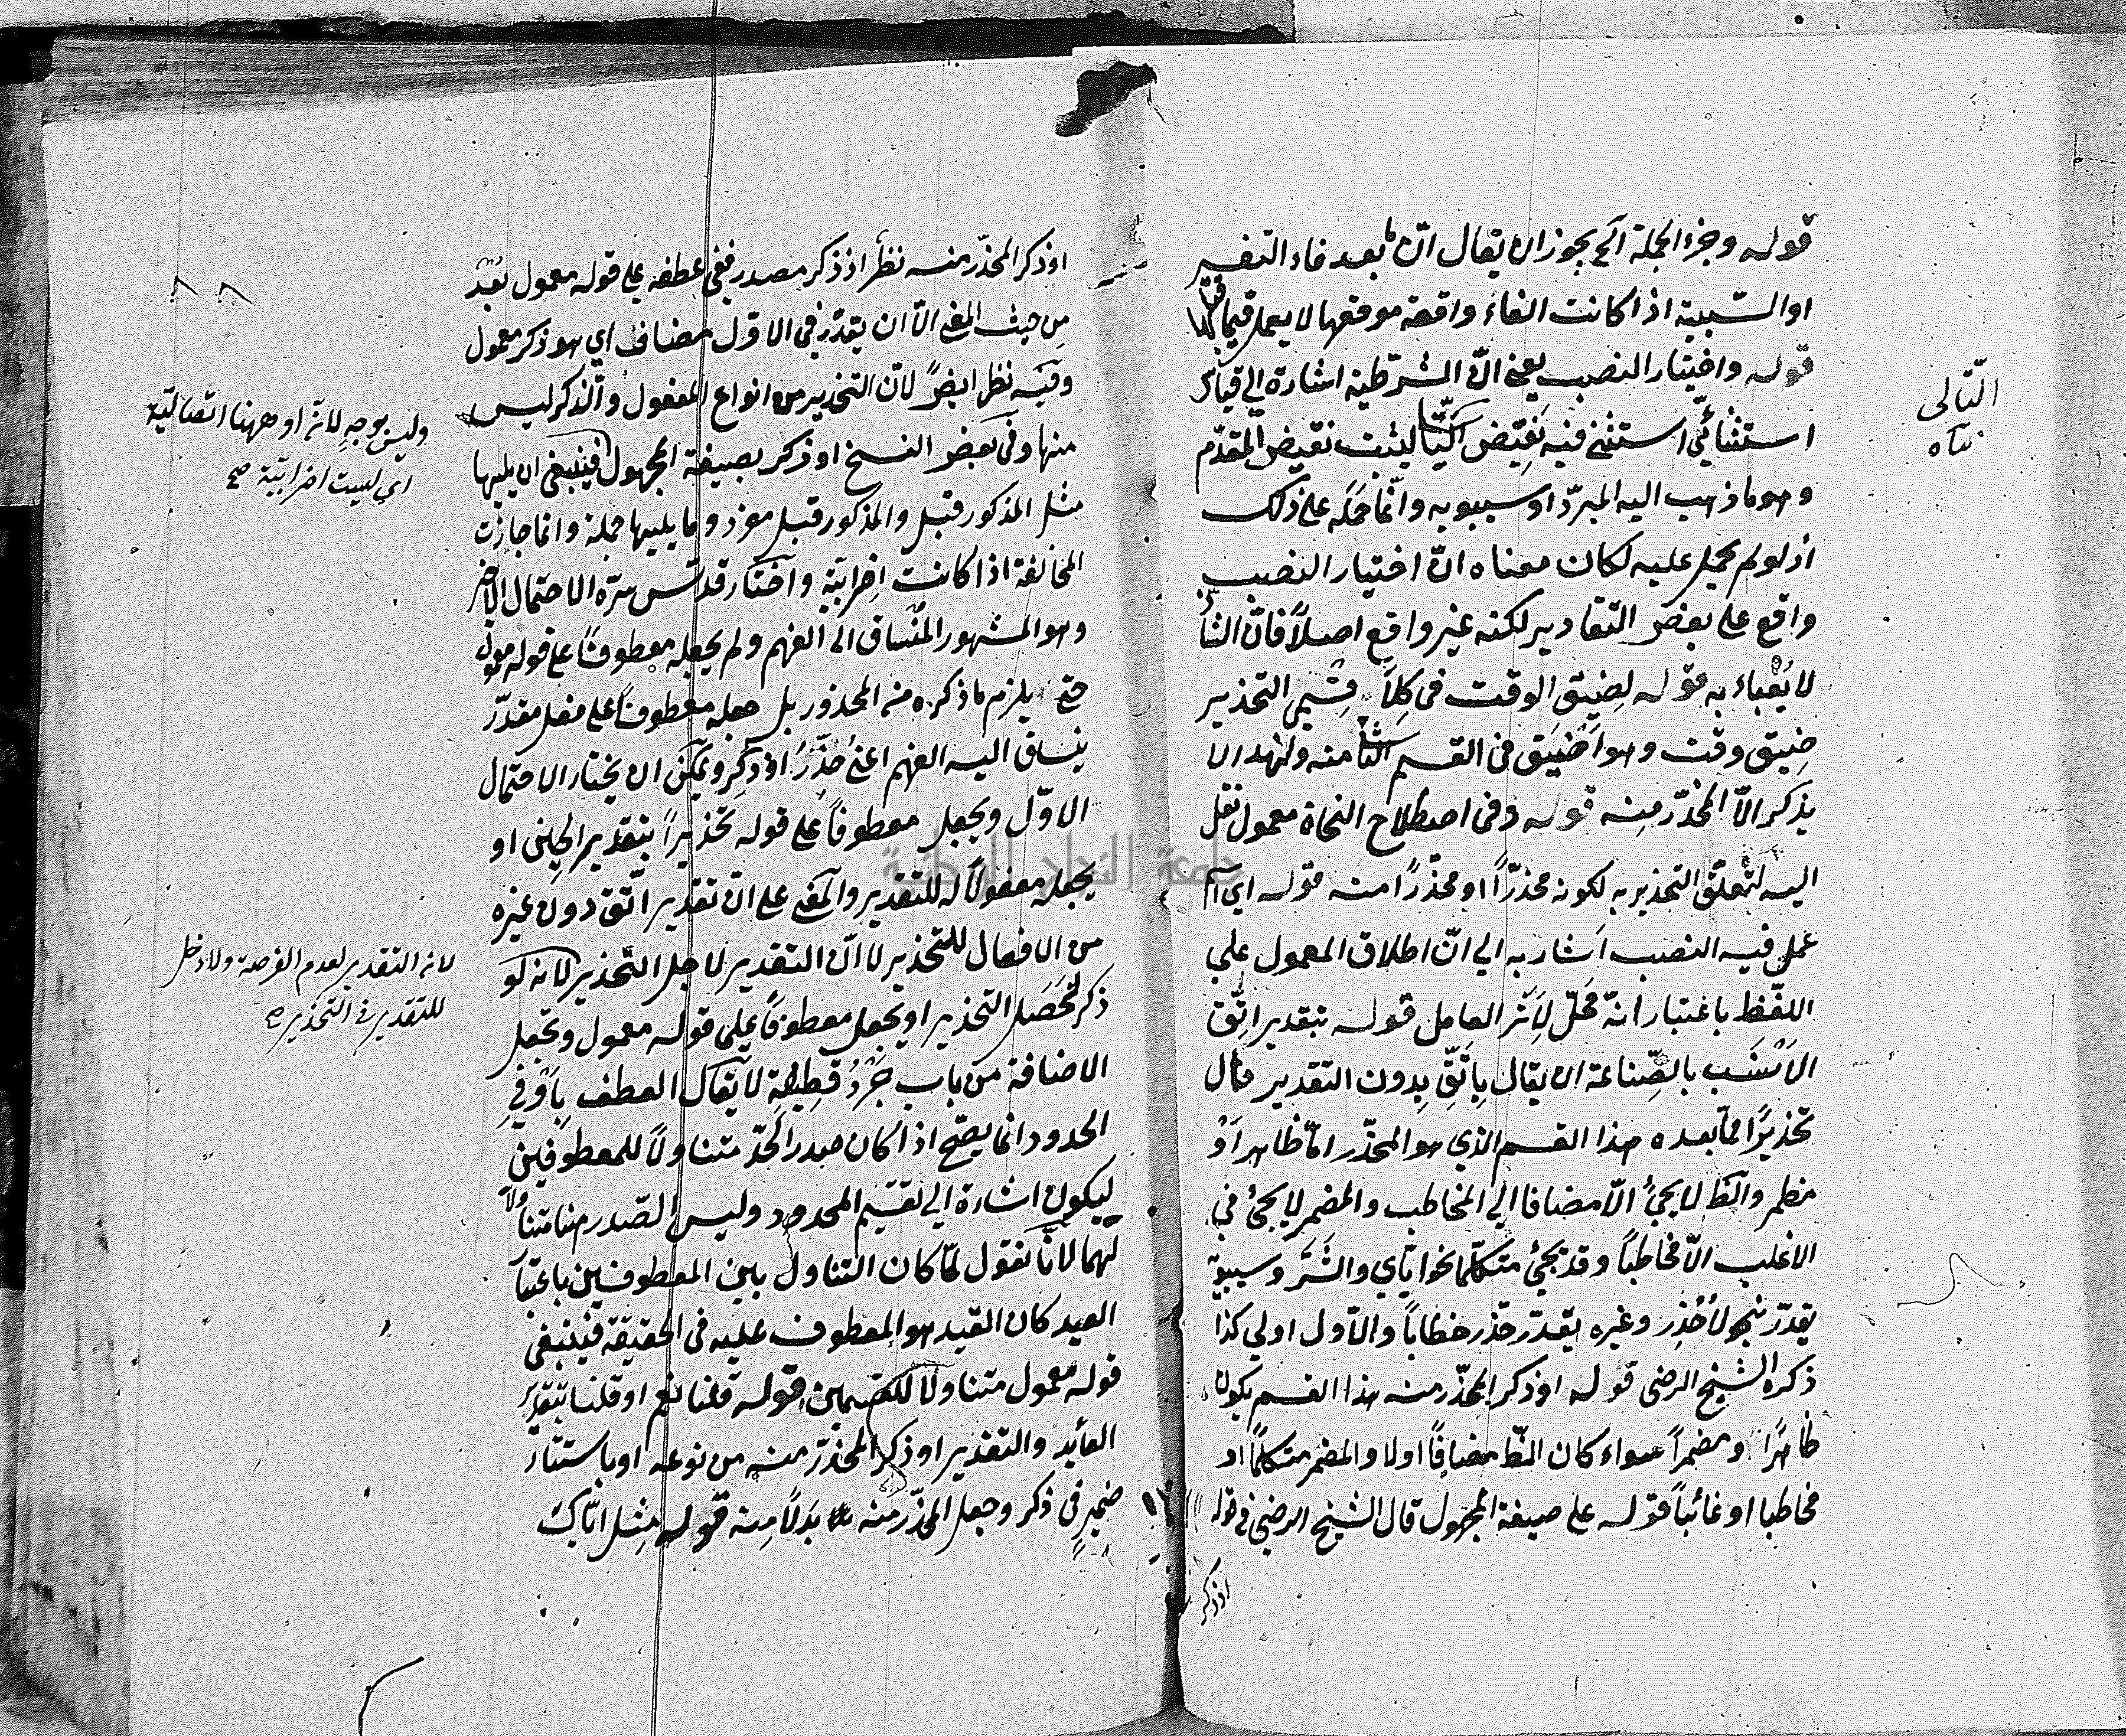 قوله وجزء الجملة آلخ يجوز ان يقال انّ ما بعد فاء التفسير
او السّببية اذا كانت الفاء واقعة موقعها لا يعمل فيما قبلها
قوله واختيار النصب يعني انّ الشرطية اشارة الي قياس
استثنائيّ استثني فيه نقيض التالي ليثبت نقيض المقدّم
وهو ما ذهب اليه المبرّد او سيبويه وانّما حمله على ذلك
اذ لو لم يحمل عليه لكان معناه انّ اختيار النصب
واقع على بعض التقادير لكنه غير واقع اصلاً فانّ الشاذ
لا يُعْباء به قوله لضيق الوقت في كِلاَ قِسْمي التحذير
ضيق وقت وهو اضيق في القسم الثاني منه ولهذا لا
يذكر الّا المحذّر منه قوله وفي اصطلاح النحاة معمول نقل
اليه لتعلّق التحذير به لكونه محذرّاً او محذّرًا منه قوله اي اسم
عمل فيه النصب اَشار به الي انّ اطلاق المعمول علي
اللفّظ باعتبار انّه محلّ لِأثر العامل قوله بتقدير اتّق
الأنسَب بالصّناعة ان يقال بِاتّقِ بدون التقدير قال
تحذيرًا ممّا بعده هذا القسم الذي هو المحذّر امّا ظاهر اَوْ
مضمر والظ لا يجئُ الّا مضافا الي المخاطب والمضمر لا يجئ في
الاغلب الّا مخاطباً وقد يجئ متكلّما نحو ايّاي والشّرَّ وسيبويه
يقدّر نحو لأُحَذِّر وغيره يقدّر حذّر خطاباً والاوّل اولي كذا
ذكره الشيخ الرضي قوله او ذكر المحذّر منه هذا القسم يكون
ظاهرًا ومضمراً سواء كان الظ مضافاً اولا والمضمر متكلماً او
مخاطبا او غائباً قوله على صيغة المجهول قال الشيخ الرضي في قوله
او ذكر
التالي
او ذكر المحذّر منه نظر اذ ذكر مصدر ففي عطفه على قوله معمول بُعْدٌ
مِن حيث المعني الّا ان يقدّر في الاوّل مضاف اي هو ذكر معمول
وفيه نظر ايضًا لانّ التحذير من انواع المفعول والذكر ليس
منها وفي بعض النسخ او ذكر بصيغة المجهول فينبغي ان يليها
مثل المذكور قبل والمذكور قبل مفرد وما يليها جملة وانما جازت
المخالفة اذا كانت اضرابيّة واختار قدّس سرّه الاحتمال الاخير
وهو المشهور المُنْساق الى الفهم ولم يجعله معطوفًا على قوله معمول
حتّي يلزم ما ذكره منه المحذور بل جعله معطوفاً على فعل مقدّر
ينساق اليه الفهم اعني حُذّرَ او ذُكِر ويمكن ان يختار الاحتمال
الاوّل ويجعل معطوفاً على قوله تحذيراً بتقدير الحِين او
يجعله مفعولاً له للتقدير والمعني على انّ تقدير اتّق دون غيره
من الافعال للتحذير لا انّ التقدير لاجل التّحذير لانه لو
ذكر لحَصَل التحذير او يجعل معطوفاً علي قوله معمول وتجعل
الاضافة من باب جَرْدُ قَطِيفَةٍ لا يقال العطف بِاَوْ في
الحدود انما يصحّ اذا كان صدر الحدّ متناولاً للمعطوفين
ليكون اشارة الي تقسيم المحدود وليس الصّدر هنا متناولاً
لهما لانّا نقول لمّا كان التناول بين المعطوفين باعتبار
القيد كان القيد هو المعطوف عليه في الحقيقة فينبغي
قوله معمول متناولًا للقسمين قوله قلنا نعم او قلنا بتقدير
العائد والتقدير او ذكر المحذّر منه من نوعه او باستتار
ضمير في ذكر وجعل المحذّر منه بَدَلاً مِنه قوله مِثل ايّاك
وليس بوجهٍ لانّه او ههنا اتصاليّة
اي ليست اضرابيّة صح
لانه التقدير لعدم الفرصة ولا دخل
للتقدير في التحذير صح
جامعة النجاح الوطنية